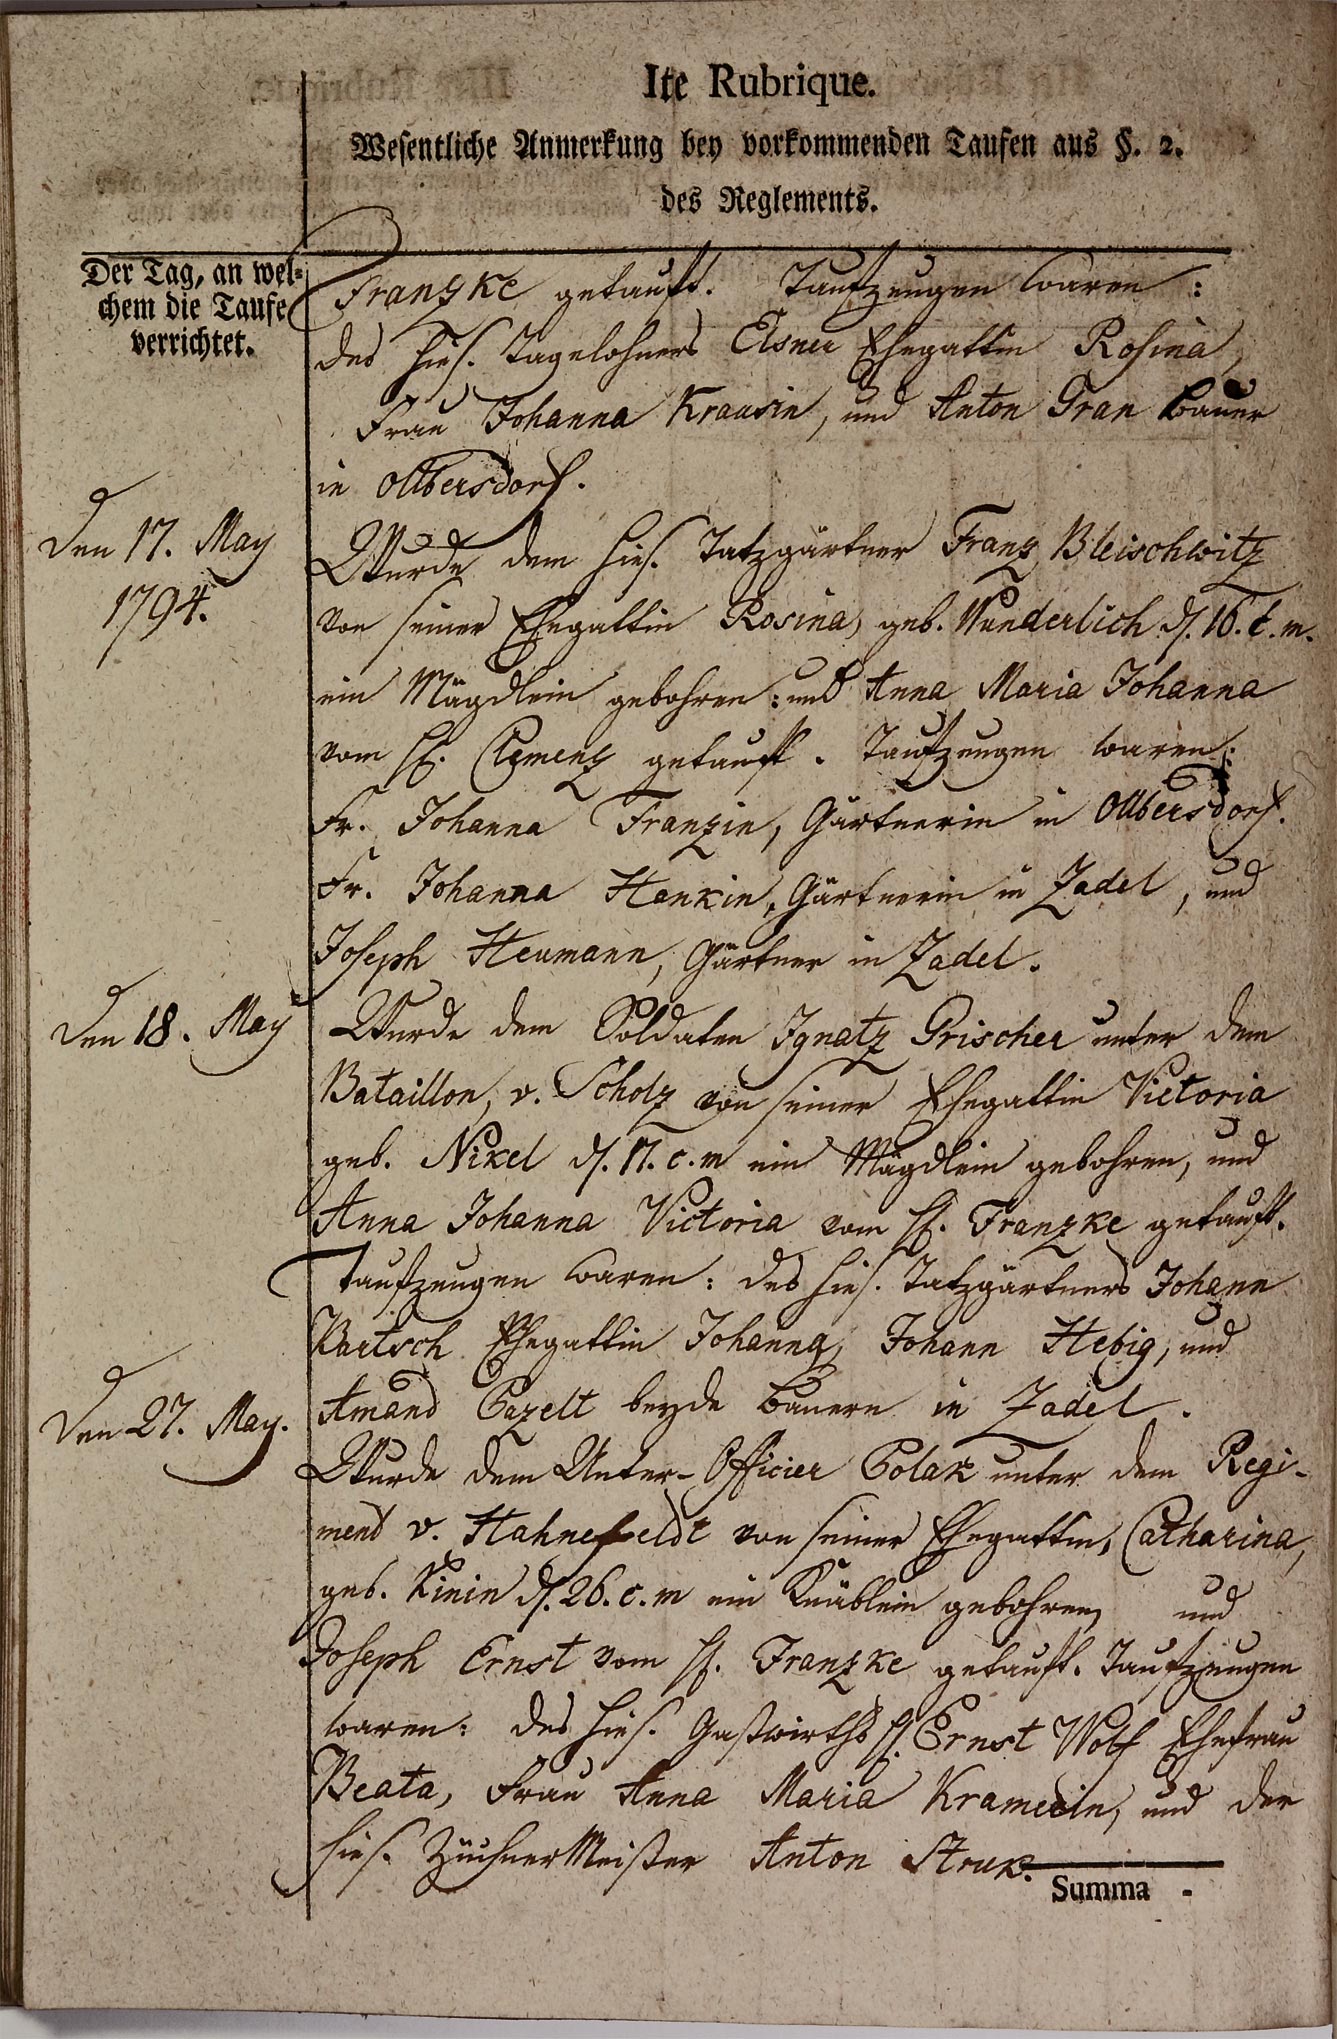 Ite Rubrique.
Wesentliche Anmerkung bey vorkommenden Taufen aus §. 2.
des Reglements.
Der Tag, an wel-
chem die Taufe
verrichtet.
Franzke getauft. Taufzeugen waren:
des hies. Tagelohners Elsner Ehegattin Rosina,
Frau Johanna Krausin, und Anton Gran Bauer
in Olbersdorf.
Den 17. May
1794.
Wurde dem hies. Tatzgärtner Franz Bleischwitz
von seiner Ehegattin Rosina, geb. Wunderlich d. 16. c. m.
ein Mägdlein gebohren: und Anna Maria Johanna
vom H. Clemenz getauft. Taufzeugen waren:
Fr. Johanna Franzin, Gärtnerin in Olbersdorf.
Fr. Johanna Hankin, Gärtnerin in Zadel, und
Joseph Heumann, Gärtner in Zadel.
Den 18. May
Wurde dem Soldaten Ignatz Grischer unter dem
Bataillon v. Scholz von seiner Ehegattin Victoria
geb. Nikel d. 17. c. m ein Mägdlein gebohren, und
Anna Johanna Victoria vom H. Franzke getauft.
Taufzeugen waren: des hies. Tatzgärtners Johann
Bartsch Ehegattin Johanna, Johann Hebig, und
Amand Pazelt beyde Bauern in Zadel.
Den 27. May.
Wurde dem Unter-Officier Polak unter dem Regi-
ment v. Hahnefeldt von seiner Ehegattin, Catharina,
geb. Kinin d. 26. c. m ein Knäblein gebohren, und
Joseph Ernst vom H. Franzke getauft. Taufzeugen
waren: des hies. Gastwirths H. Ernst Wolf Ehefrau
Beata, Frau Anna Maria Kramerin, und der
hies. Züchner Meister Anton Struk.
Summa -